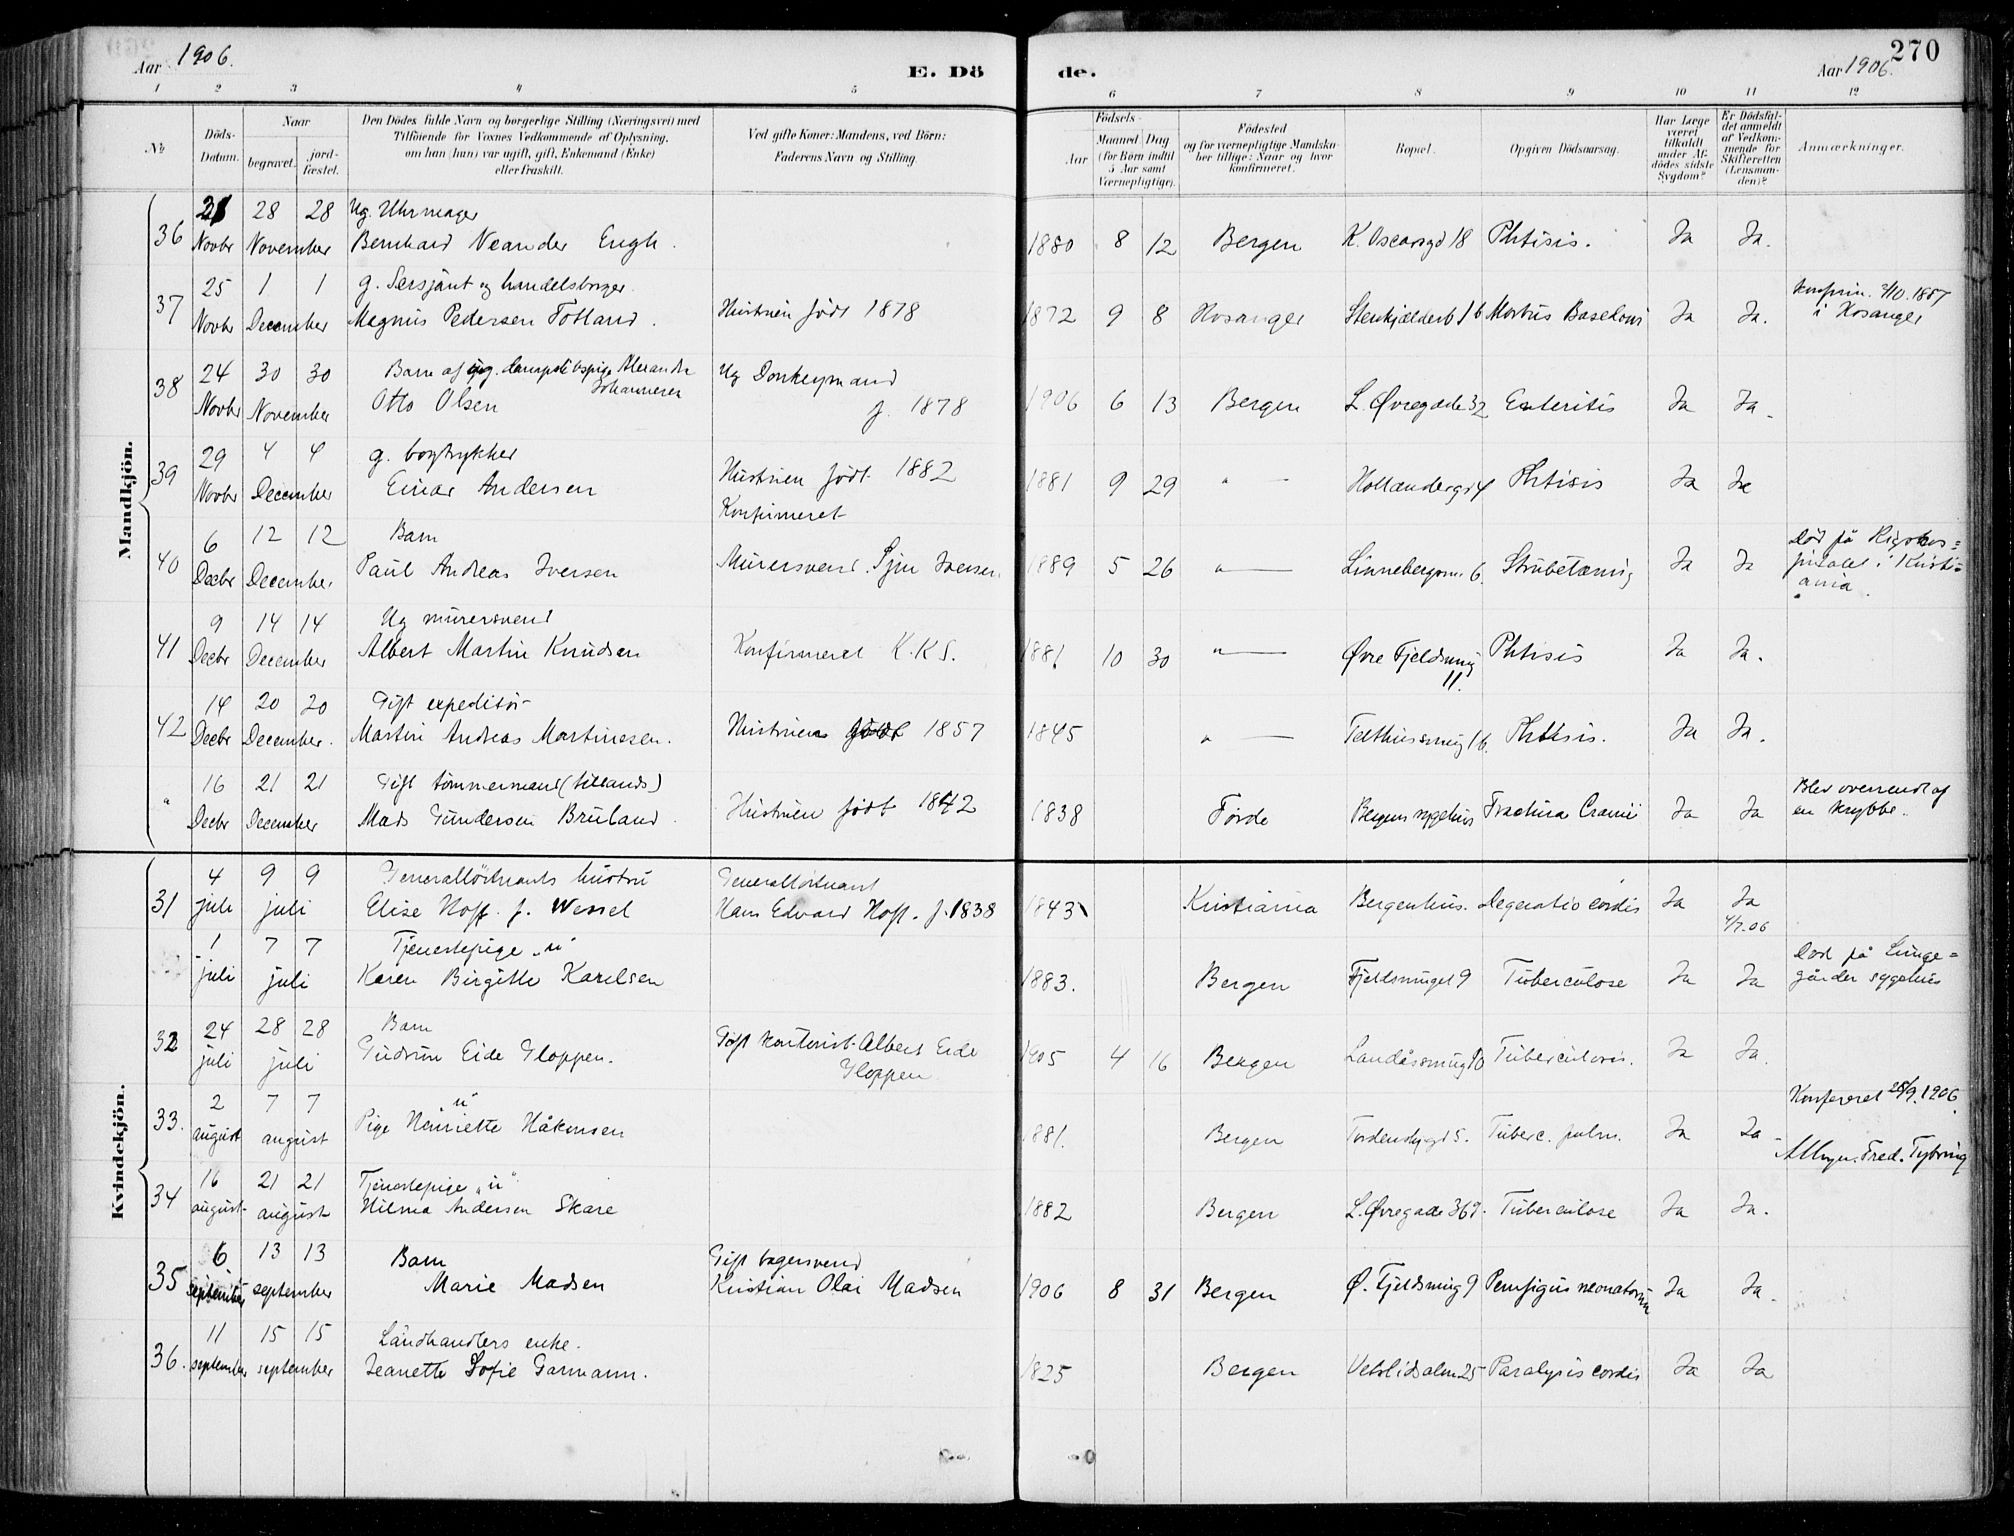 Aar 1906.
E. Dö
de.
Aar 1906.
270
1 2 3 4 5 6 7 8 9 10 11 12
No
Döds-
Datum.
Naar
begravet.
jord-
fæstet.
Den Dödes fulde Navn og borgerlige Stilling (Næringsvei) med
Tilföiende for Voxnes Vedkommende af Oplysning,
om han (hun) var ugift, gift, Enkemand (Enke)
eller fraskilt.
Ved gifte Koner: Mandens, ved Börn:
Faderens Navn og Stilling.
Födsels-
Aar
Maaned Dag
(for Börn indtil
5 Aar samt
Værnepligtige).
Födested
og for værnepligtige Mandska-
ber tillige: Naar og hvor
konfirmeret.
Bopæl.
Opgiven Dödsaarsag.
Har Læge
været
tilkaldt
under Af-
dödes sidste
Sygdom?
Er Dödsfal-
det anmeldt
af Vedkom-
mende for
Skifteretten
(Lensman-
den)?
Anmærkninger.
Mandkjön.
36 21 28 28 Ug. Uhrmager
Novbr November Bernhard Neander Engh. 1880 8 12 Bergen K. Oscarsgd 18 Phtisis. Ja Ja.
37 25 1 1 g. Sersjant og handelsborger
Novbr December Magnus Pedersen Totland. Hustruen født 1878 1872 9 8 Hosanger Stenkjelderb 16 Morbus Basedowi Ja Ja. konfirm. 2/10. 1887
i Hosanger
38 24 30 30 Barn af ug. Alexandra
Johannesen Ug Donkeymand
Novbr November Otto Olsen f. 1878 1906 6 13 Bergen L. Øvregade 32 Enteritis Ja Ja.
39 29 4 4 g. bogtrykker
Novbr December Einar Andersen Hustruen født 1882 1881 9 29 " — Hollendergd 4 Phtisis Ja Ja
Konfirmeret
40 6 12 12 Barn
Decbr December Paul Andreas Iversen Murersvend Iversen. 1889 5 26 " — Linnebergsm. 6. Strubetæring Ja Ja Død på Rigshos=
pitalet i Kristi=
ania.
41 9 14 14 Ug murersvend
Decbr December Albert Martin Knudsen Konfirmeret K.K S. 1881 10 30 " — Øvre Fjeldsmug
11. Phtisis Ja Ja.
42 14 20 20 Gift expeditør
Decbr December. Martin Andreas Martinesen. Hustruen født 1857 1845 " — Telthussmug 16. Phtisis. Ja Ja.
" 16 21 21 Gift tømmermand (tillands)
Decbr December Mads Gundersen Bruland. Hustruen født 1842 1838 Førde Bergens sygehus Fractura Cranii Ja Ja Blev overrendt af
en krybbe.
Kvindekjön.
31 4 9 9 Generalløitnants hustru Generalløitnant
juli juli Elise Hoff. f. Wessel Hans Edvard Hoff. f. 1838 1843 Kristiania Bergenhus. Degeratio cordis Ja Ja
4/7.06
1 7 7 Tjenestepige „u"
juli juli Karen Birgitte Karelsen 1883. Bergen Fjeldsmuget 9 Tuberculose Ja Ja Død på Lunge=
gårdens sygehus
32 24 28 28 Barn
juli juli Gudrun Eide Gloppen. Gift kontorist Albert Eide
Gloppen 1905 4 16 Bergen Landåssmug 10 Tuberculosis. Ja Ja.
33. 2 7 7 „u"
august august Pige Henriette Håkonsen 1881. Bergen Tordenskjgd 5. Tuberc. pulm. Ja Ja
Konfereret 28/9. 1906.
Fred. Tybring
34 16 21 21 Tjenestepige „u"
august august Hilma Andersen Skare 1882 Bergen L. Øvregade 36 Tuberculose Ja Ja.
35 6 13 13 Barn Gift bagersvend
september september Marie Madsen Kristian Olai Madsen 1906 8 31 Bergen Ø. Fjeldsmug 9 Pemfigus neonatorum Ja Ja.
36. 11 15 15 Landhandlers enke.
september september Jeanette Sofie Garmann. 1825 Bergen Vetrlidsalm 25 Paralysis cordis Ja Ja